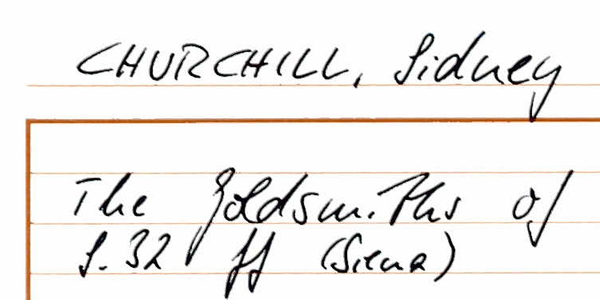 CHURCHILL, Sidney
The Goldsmiths of
S. 32 ff (Siena)